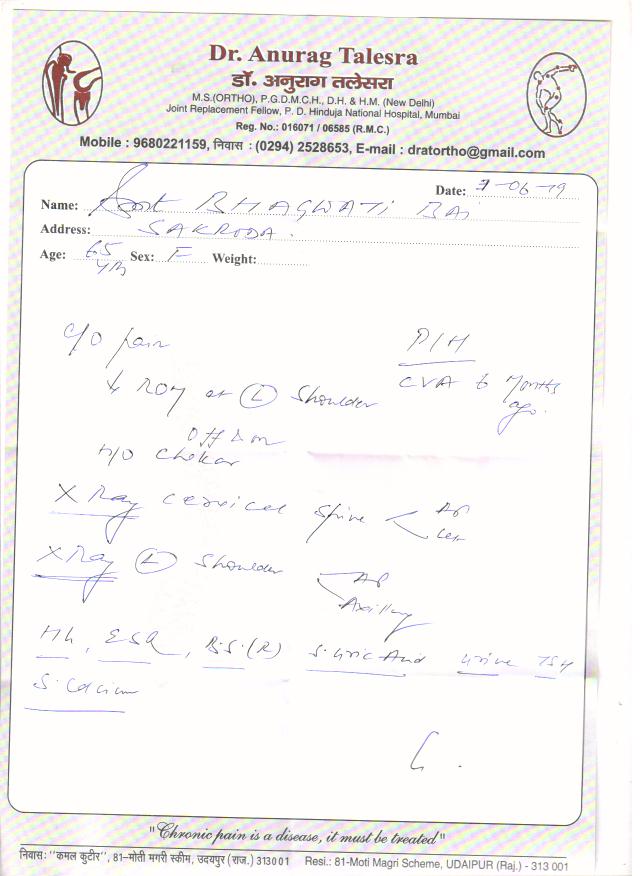 Dr. Anurag Talesra
डॉ. अनुराग तलेसरा
M.S.(ORTHO), P.G.D.M.C.H., D.H. & H.M. (New Delhi)
Joint Replacement Fellow, P. D. Hinduja National Hospital, Mumbai
Reg. No.: 016071 / 06585 (R.M.C.)
Mobile : 9680221159, निवास : (0294) 2528653, E-mail : dratortho@gmail.com
Date: 7-06-19
Name: Smt BHAGWATI BAI
Address: SAKRODA.
Age: 65 yrs Sex: F Weight:
C/O pain
P/H
↓ ROM at (L) Shoulder
CVA 6 Months ago.
Off & on
H/O Chakar
X Ray cervical spine < AP Lat
X Ray (L) Shoulder < AP Axillary
Hb, ESR, B.S.(R) S. Uric Acid Urine TSH
S. Calcium
"Chronic pain is a disease, it must be treated"
निवास: "कमल कुटीर", 81-मोती मगरी स्कीम, उदयपुर (राज.) 313001 Resi.: 81-Moti Magri Scheme, UDAIPUR (Raj.) - 313 001